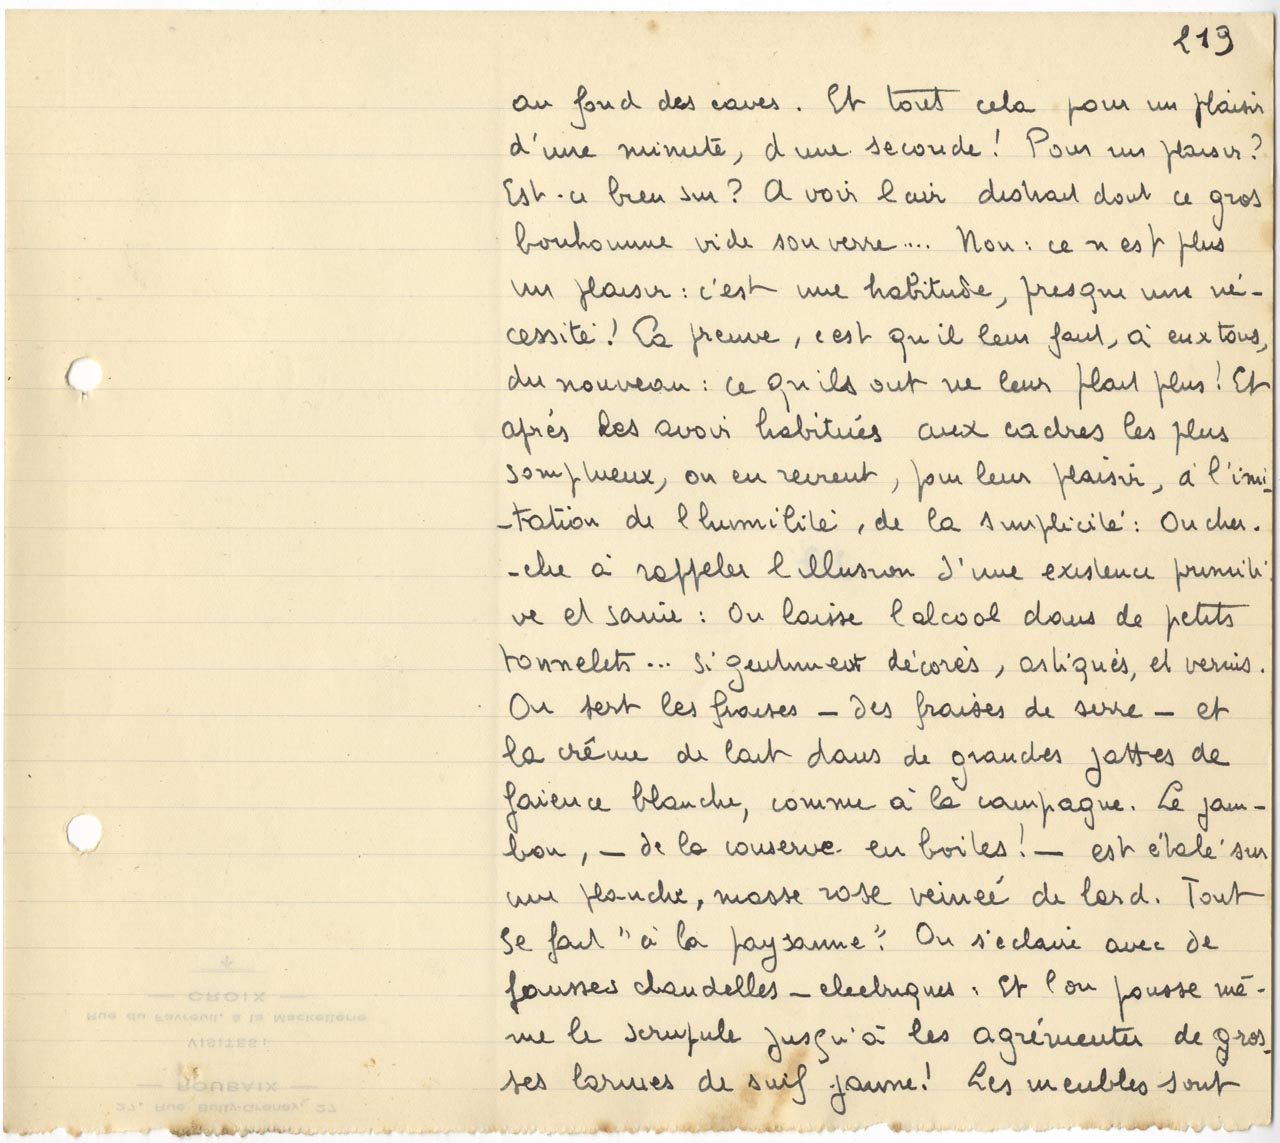 219
au fond des caves. Et tout cela pour un plaisir
d'une minute, d'une seconde! Pour un plaisir?
Est-ce bien sur? A voir l'air distrait dont ce gros
bonhomme vide son verre.... Non: ce n'est plus
un plaisir: c'est une habitude, presque une né-
cessité! La preuve, c'est qu'il leur faut, à eux tous,
du nouveau: ce qu'ils ont ne leur plait plus! Et
après les avoir habitués aux cadres les plus
somptueux, on en revient, pour leur plaisir, à l'imi-
-tation de l'humilité, de la simplicité: On cher-
-che à rappeler l'illusion d'une existence primiti-
ve et saine: On laisse l'alcool dans de petits
tonnelets... si gentiment décorés, astiqués, et vernis.
On sert les fraises - des fraises de serre - et
la crême de lait dans de grandes jattes de
faience blanche, comme à la campagne. Le jam-
bon, - de la conserve en boites! - est étalé sur
une planche, masse rose veinée de lard. Tout
se fait "à la paysanne". On s'eclaire avec de
fausses chandelles - electriques. Et l'on pousse mê-
me le scrupule jusqu'à les agrémenter de gros-
ses larmes de suif jaune! Les meubles sont
CROIX
Rue du Favreuil, à la Mackellerie
VISITES:
ROUBAIX
27, Rue Bully-Grenay, 27